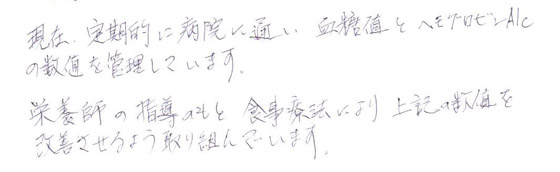 現在、定期的に病院に通い、血糖値とヘモグロビンA1c
の数値を管理しています。
栄養師の指導のもと食事療法により上記の数値を
改善させるよう取り組んでいます。